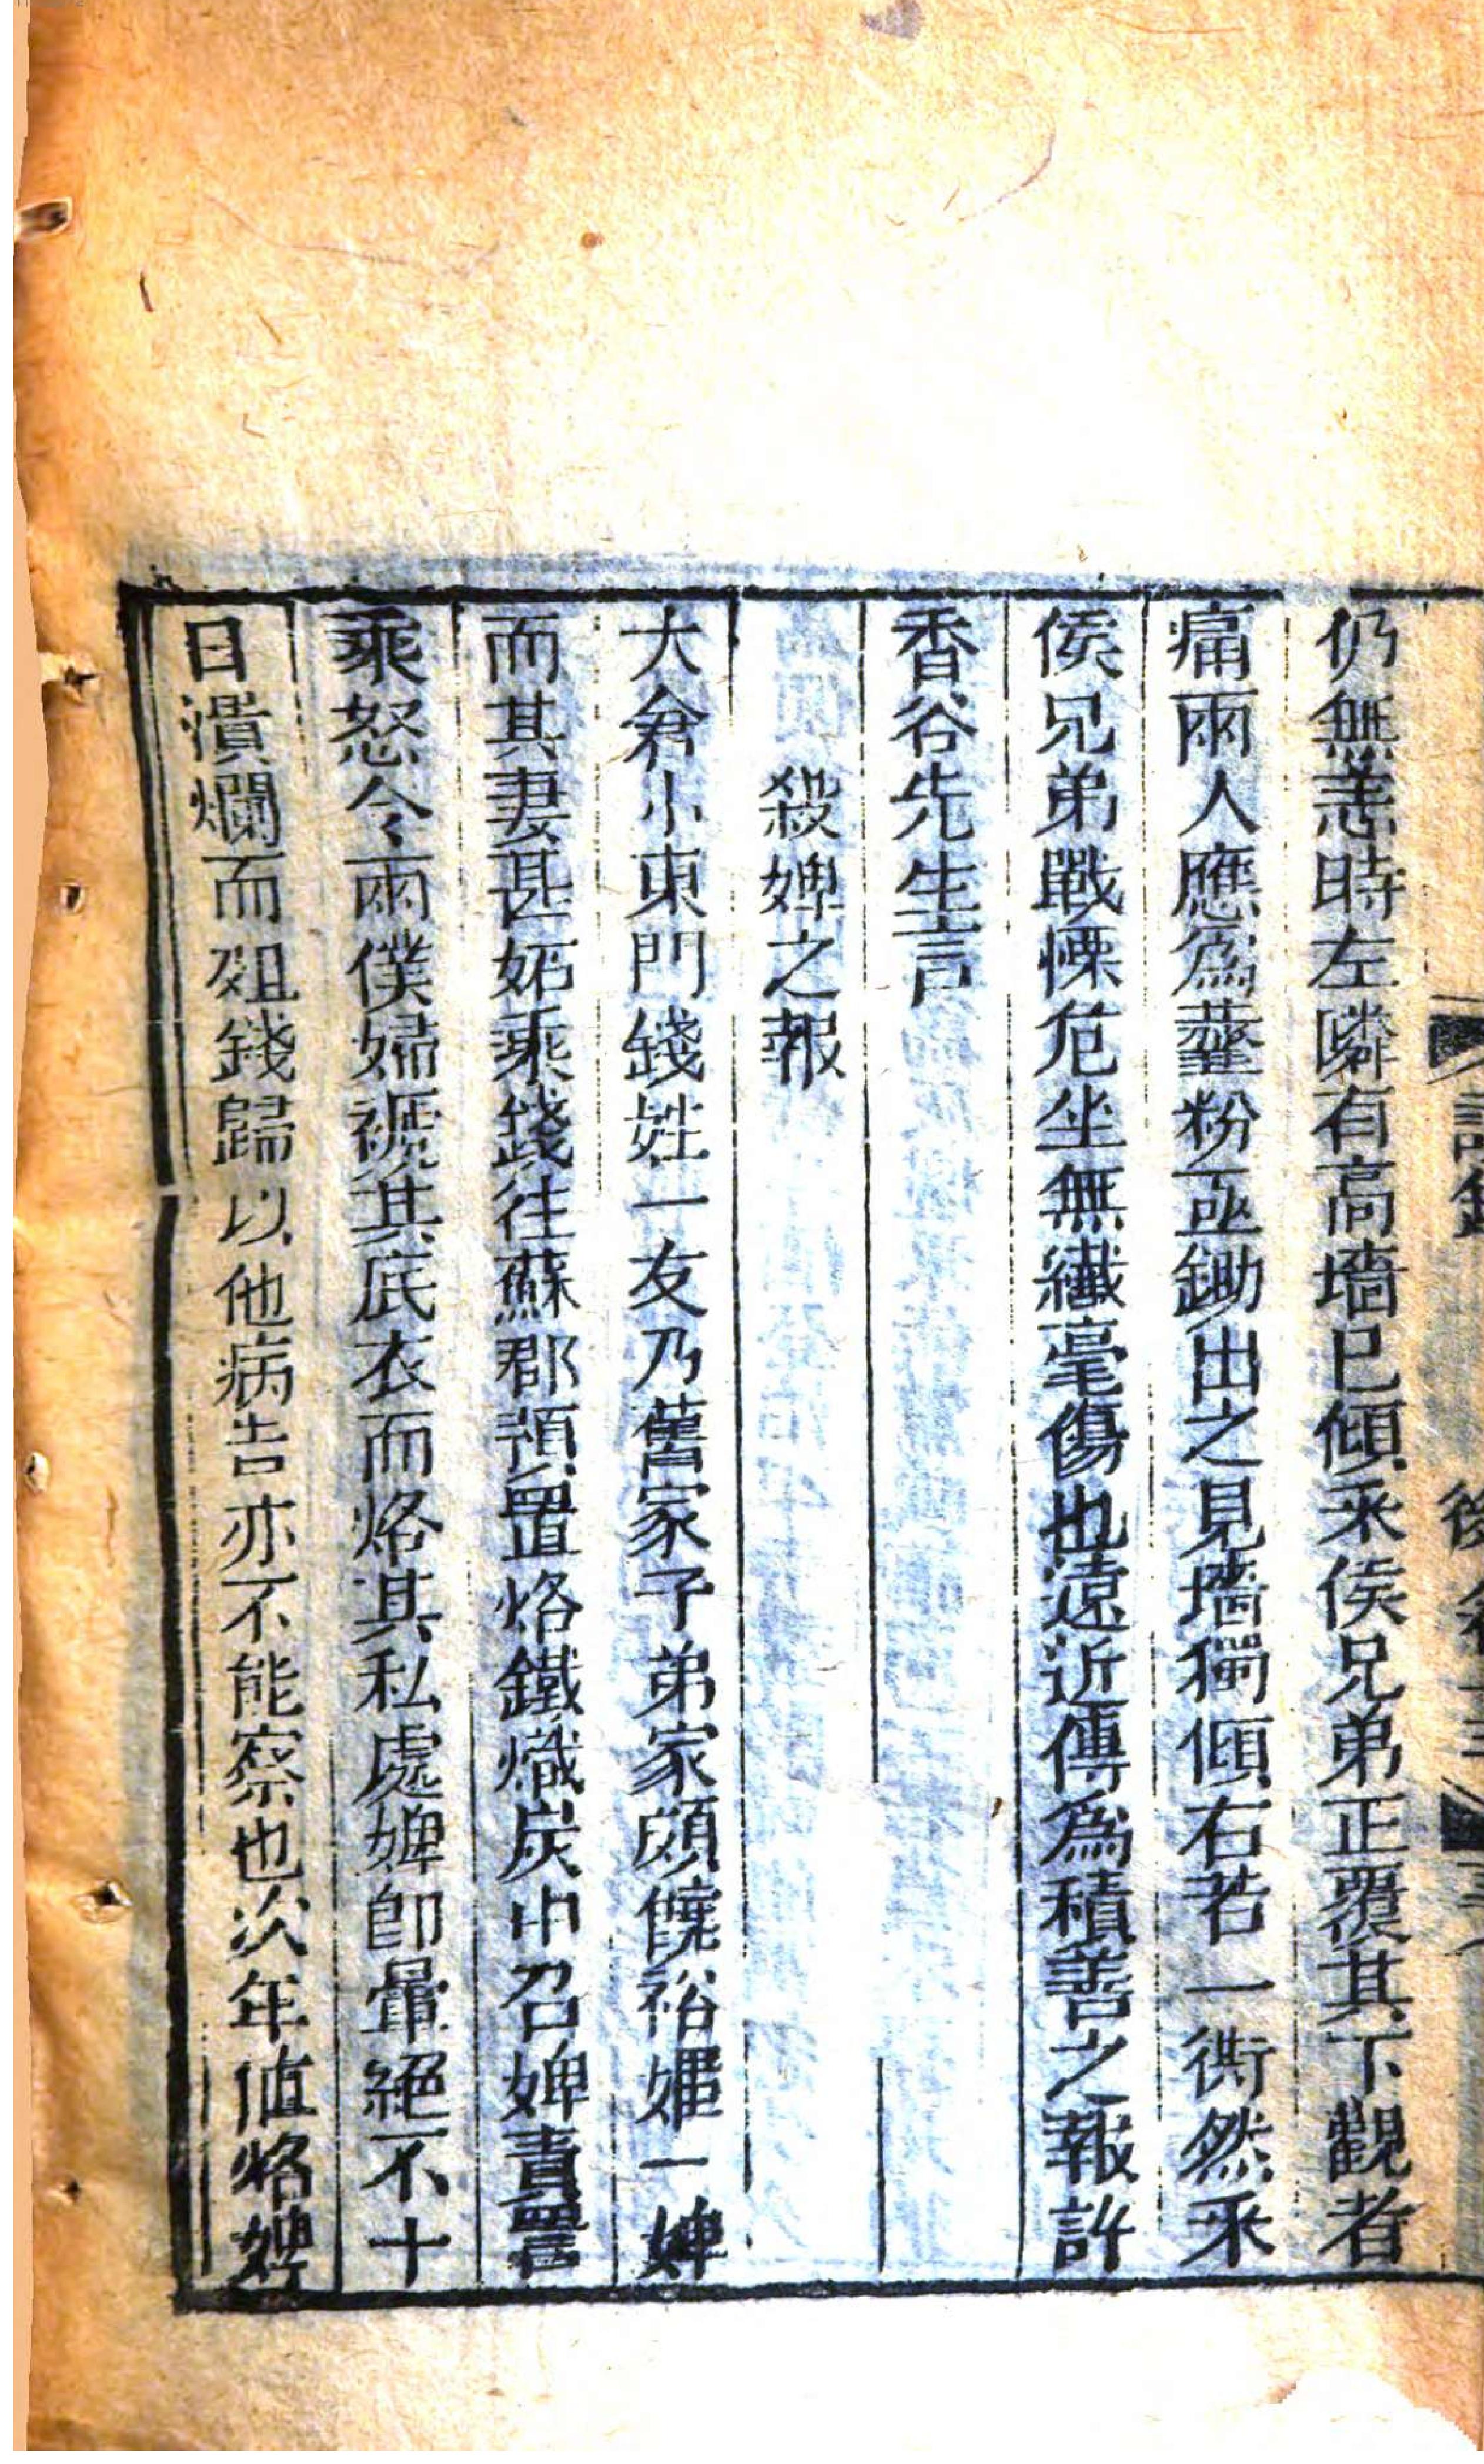 仍無恙時左隣有高墻已傾釆侯兄弟正覆其下觀者
痛兩人應爲虀粉亟鋤出之見墻獨傾右若一衖然釆
侯兄弟戰慄危坐無纖毫傷也遠近傳爲積善之報許
香谷先生言
殺婢之報
大倉小東門錢姓一友乃舊家子弟家頗饒裕 一婢
而其妻甚妬乘錢往蘇郡預置烙鐵熾炭中召婢責詈
乘怒令兩僕婦褫其底衣而烙其私處婢卽暈絕不十
日潰爛而殂錢歸以他病告亦不能察也次年値烙婢